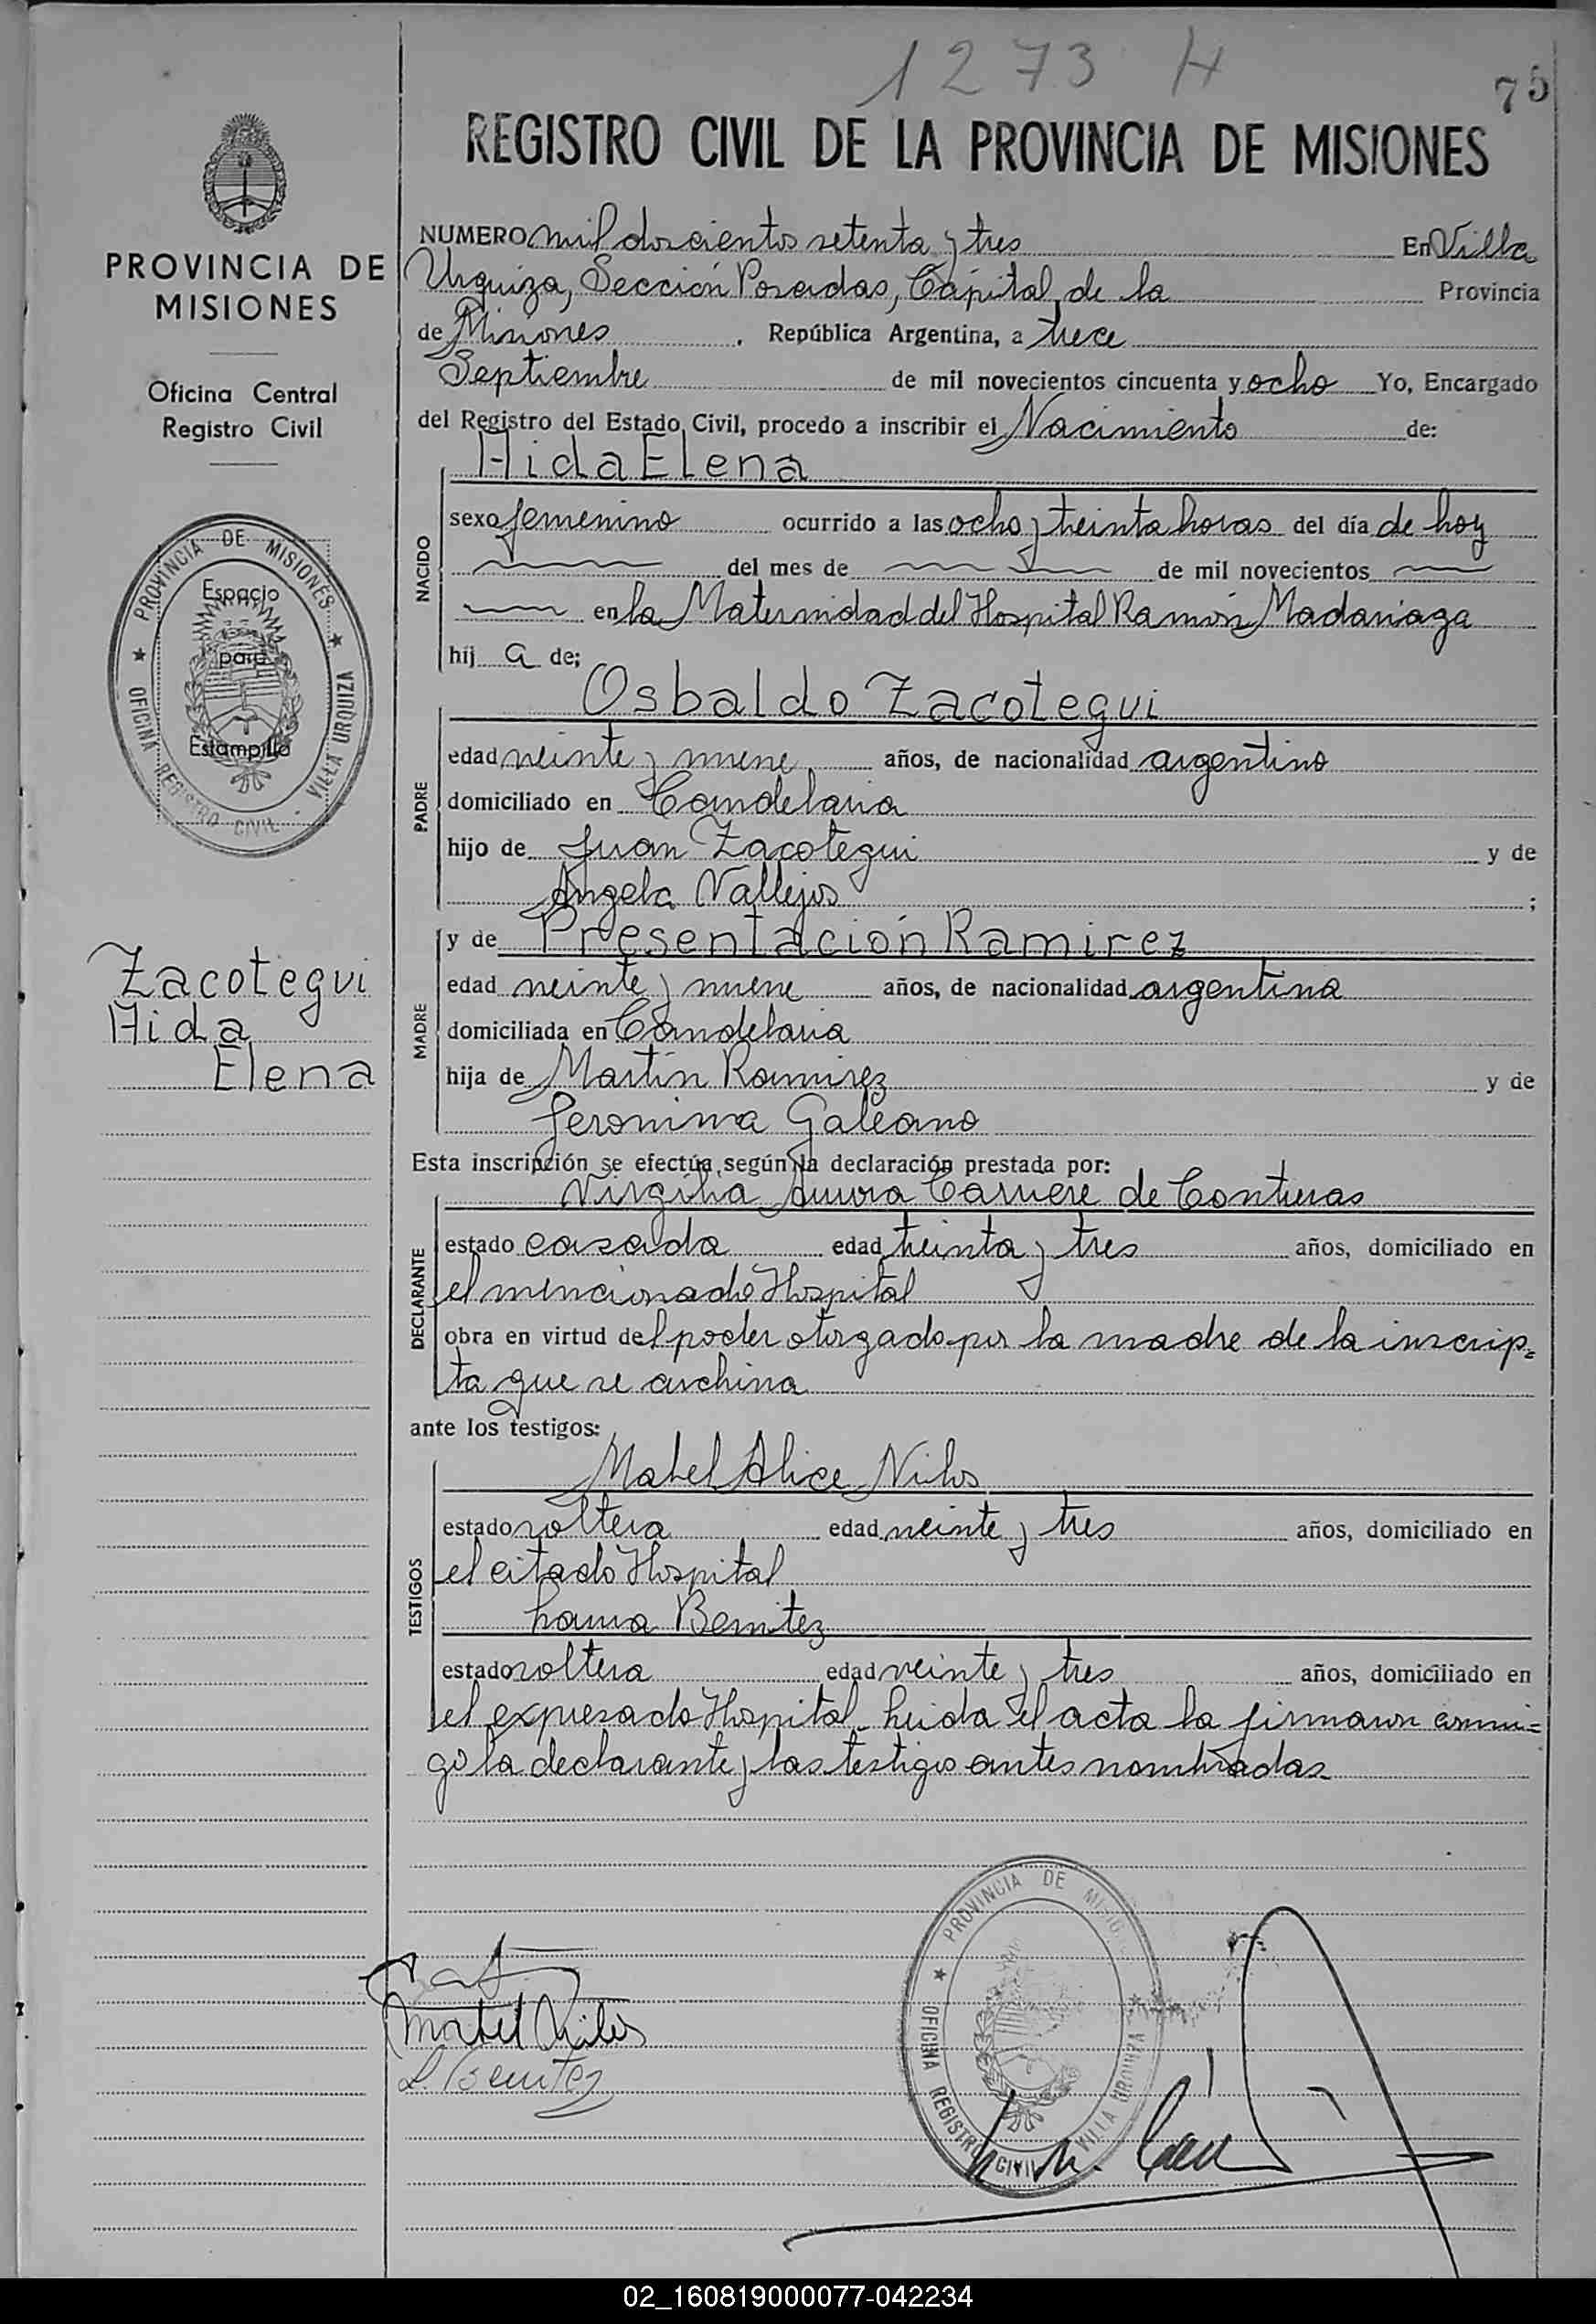 1273 H
75
REGISTRO CIVIL DE LA PROVINCIA DE MISIONES
PROVINCIA DE
MISIONES
Oficina Central
Registro Civil
PROVINCIA DE MISIONES
OFICINA REGISTRO CIVIL - VILLA URQUIZA
Espacio
para
Estampilla
Zacotegui
Hida
Elena
NUMERO mil doscientos setenta y tres En Villa
Urquiza, Sección Posadas, Capital de la Provincia
de Misiones, República Argentina, a trece
Septiembre de mil novecientos cincuenta y ocho Yo, Encargado
del Registro del Estado Civil, procedo a inscribir el Nacimiento de:
NACIDO
Hida Elena
sexo femenino ocurrido a las ocho y treinta horas del día de hoy
del mes de de mil novecientos
en la Maternidad del Hospital Ramón Madariaga
hij a de;
PADRE
Osbaldo Zacotegui
edad veinte y nueve años, de nacionalidad argentino
domiciliado en Candelaria
hijo de Juan Zacotegui y de
Angela Vallejos ;
MADRE
y de Presentación Ramirez
edad veinte y nueve años, de nacionalidad argentina
domiciliada en Candelaria
hija de Martin Ramirez y de
Jeronima Galeano
Esta inscripción se efectúa según la declaración prestada por:
DECLARANTE
Virgilia Aurora Carriere de Contreras
estado casada edad treinta y tres años, domiciliado en
el mencionado Hospital
obra en virtud del poder otorgado por la madre de la inscrip=
ta que se archiva
ante los testigos:
TESTIGOS
Mabel Alice Niilos
estado soltera edad veinte y tres años, domiciliado en
el citado Hospital
Laura Benitez
estado soltera edad veinte y tres años, domiciliado en
el expresado Hospital. Leida el acta la firmaron conmi=
go la declarante y las testigos antes nombradas.
PROVINCIA DE
OFICINA REGISTRO CIVIL VILLA URQUIZA
Mabel
L. Benitez
02_160819000077-042234